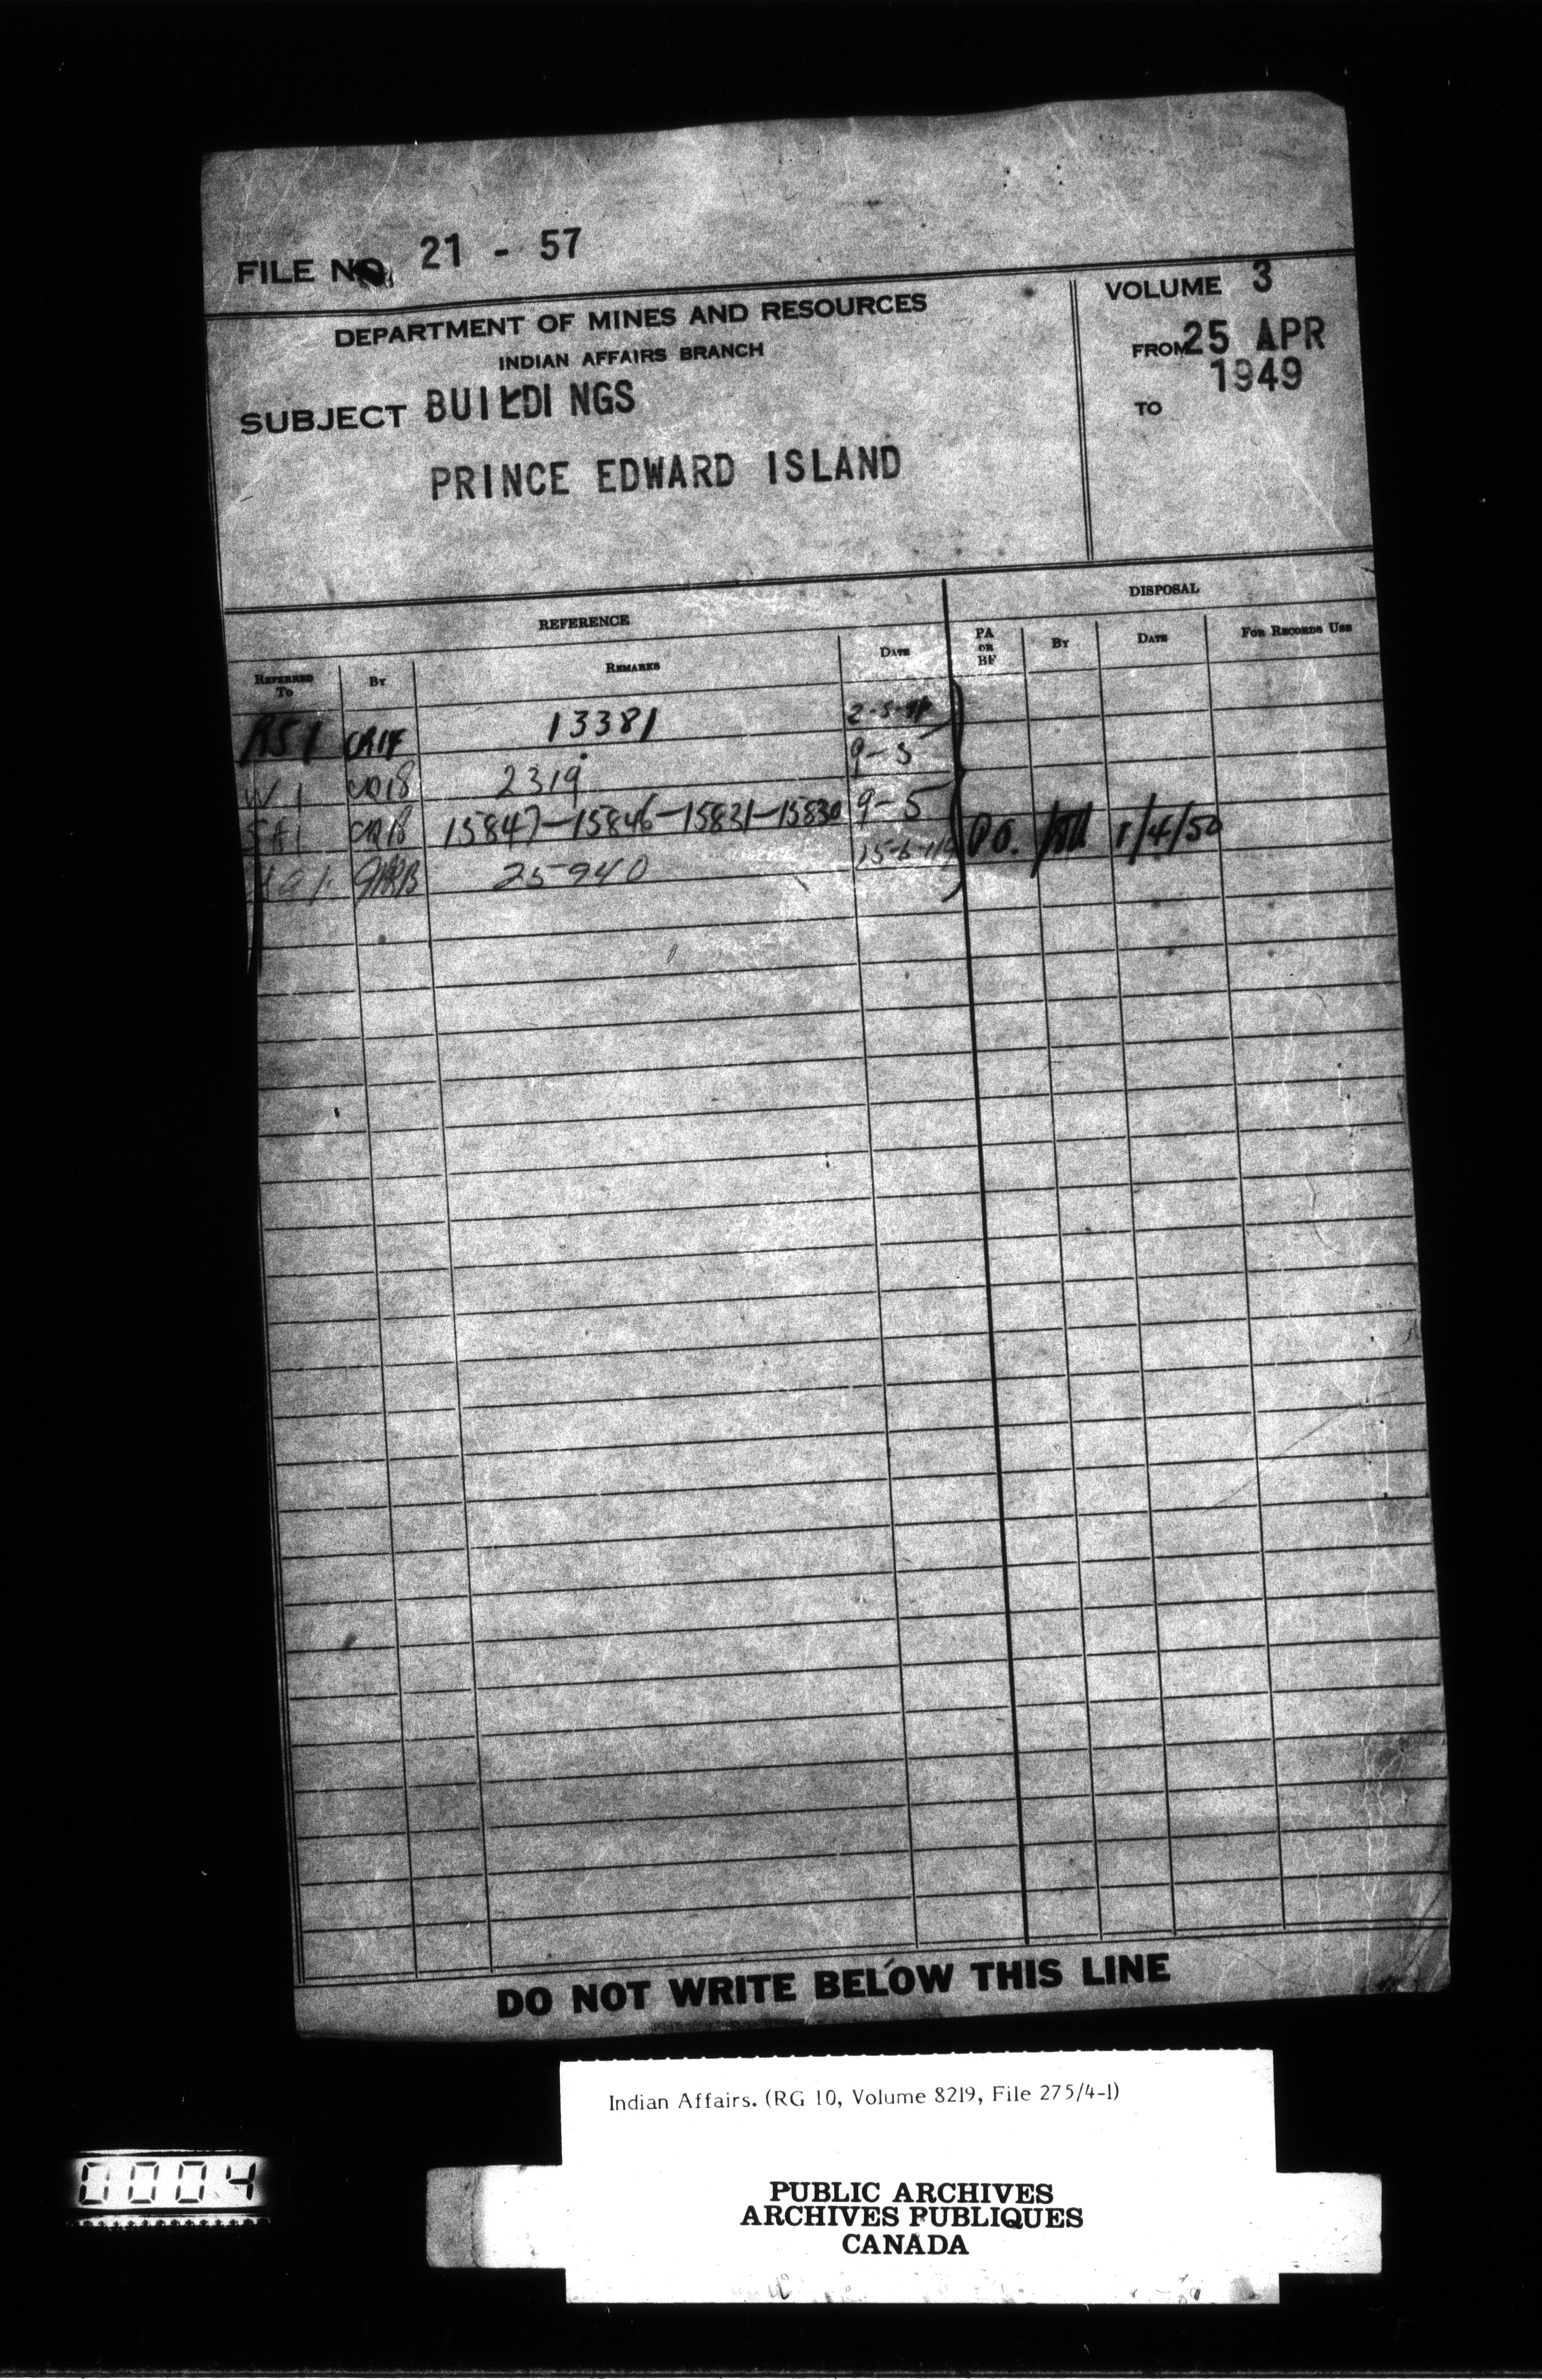 FILE NO. 21 - 57
DEPARTMENT OF MINES AND RESOURCES
INDIAN AFFAIRS BRANCH
SUBJECT BUILDINGS
PRINCE EDWARD ISLAND
VOLUME 3
FROM 25 APR
1949
TO
REFERENCE
DISPOSAL
REFERRED TO BY REMARKS DATE PA OR BF BY DATE FOR RECORDS USE
13381
2319 9-5
15847-15846-15831-15830 9-5 1/4/50
25940
DO NOT WRITE BELOW THIS LINE
Indian Affairs. (RG 10, Volume 8219, File 275/4-1)
PUBLIC ARCHIVES
ARCHIVES PUBLIQUES
CANADA
0004